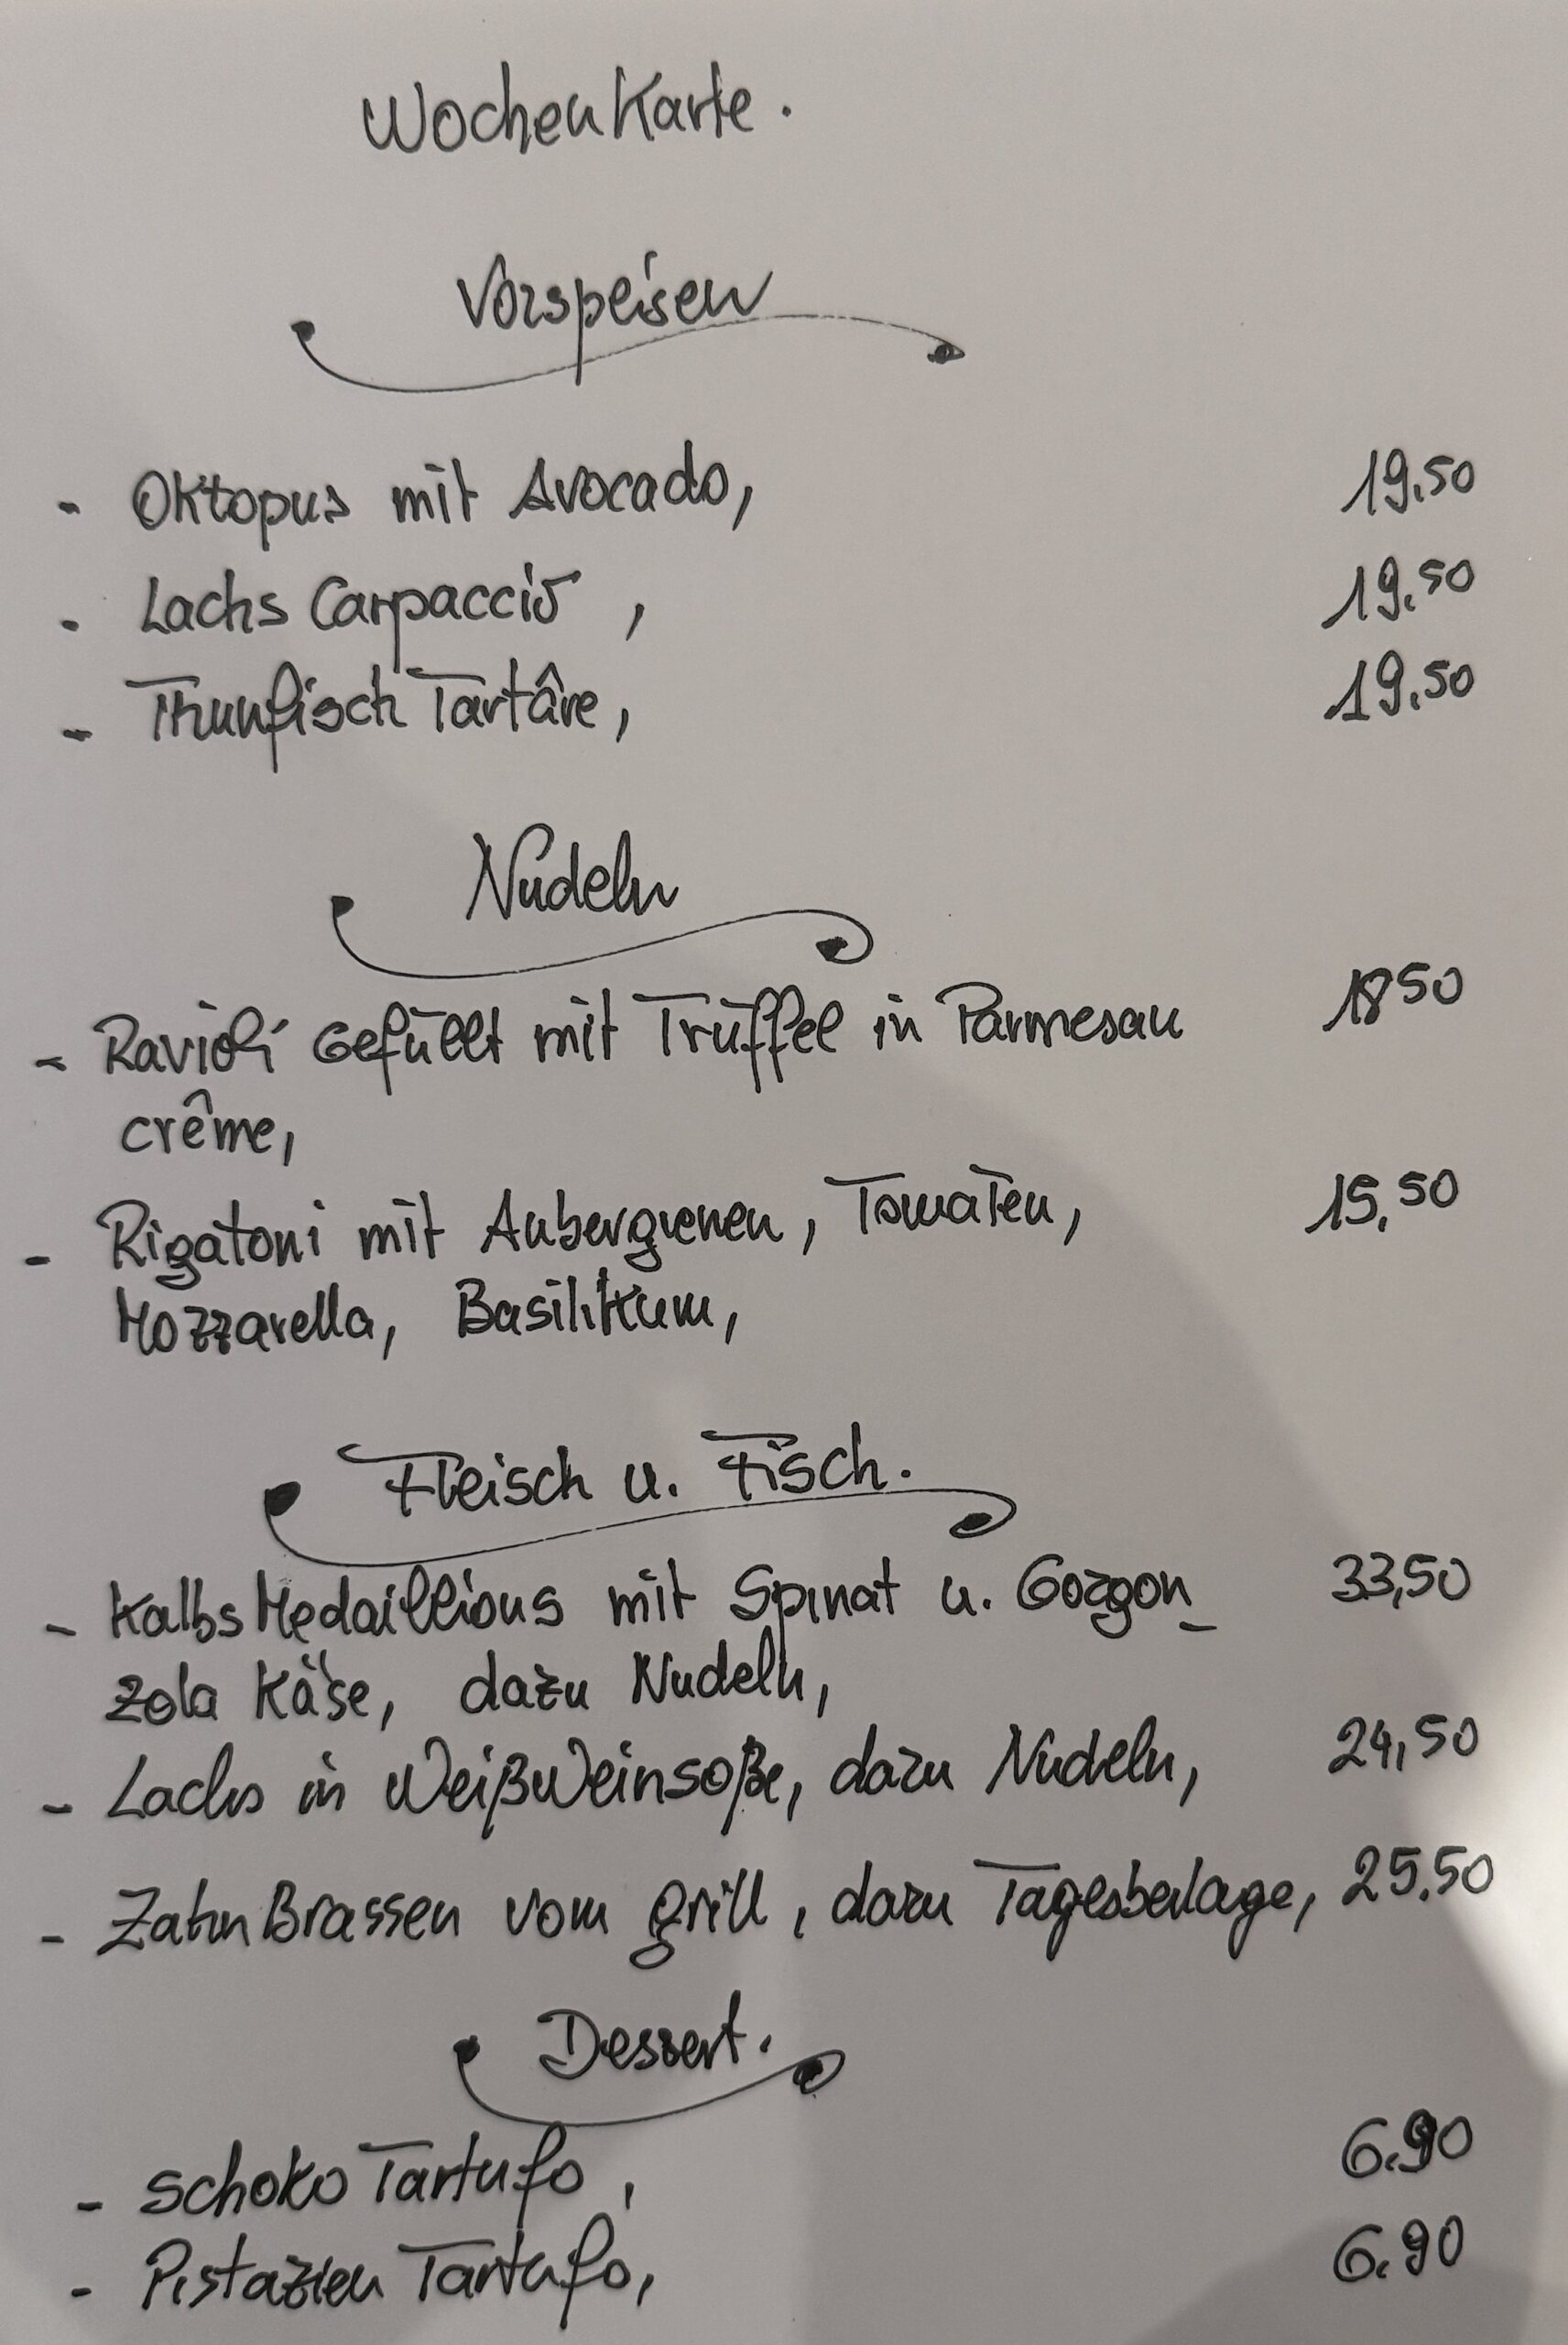 Wochenkarte.
Vorspeisen
- Oktopus mit Avocado, 19.50
- Lachs Carpaccio, 19.50
- Thunfisch Tartâre, 19.50
Nudeln
- Ravioli Gefüllt mit Trüffel in Parmesan 18 50
crême,
- Rigatoni mit Aubergienen, Tomaten, 15,50
Mozzarella, Basilikum,
Fleisch u. Fisch.
- Kalbs Medaillions mit Spinat u. Gorgon_ 33,50
zola Käse, dazu Nudeln,
- Lachs in Weißweinsoße, dazu Nudeln, 24,50
- Zahn Brassen vom grill, dazu Tagesbeilage, 25.50
Dessert.
- schoko Tartufo, 6.90
- Pistazien Tartufo, 6.90